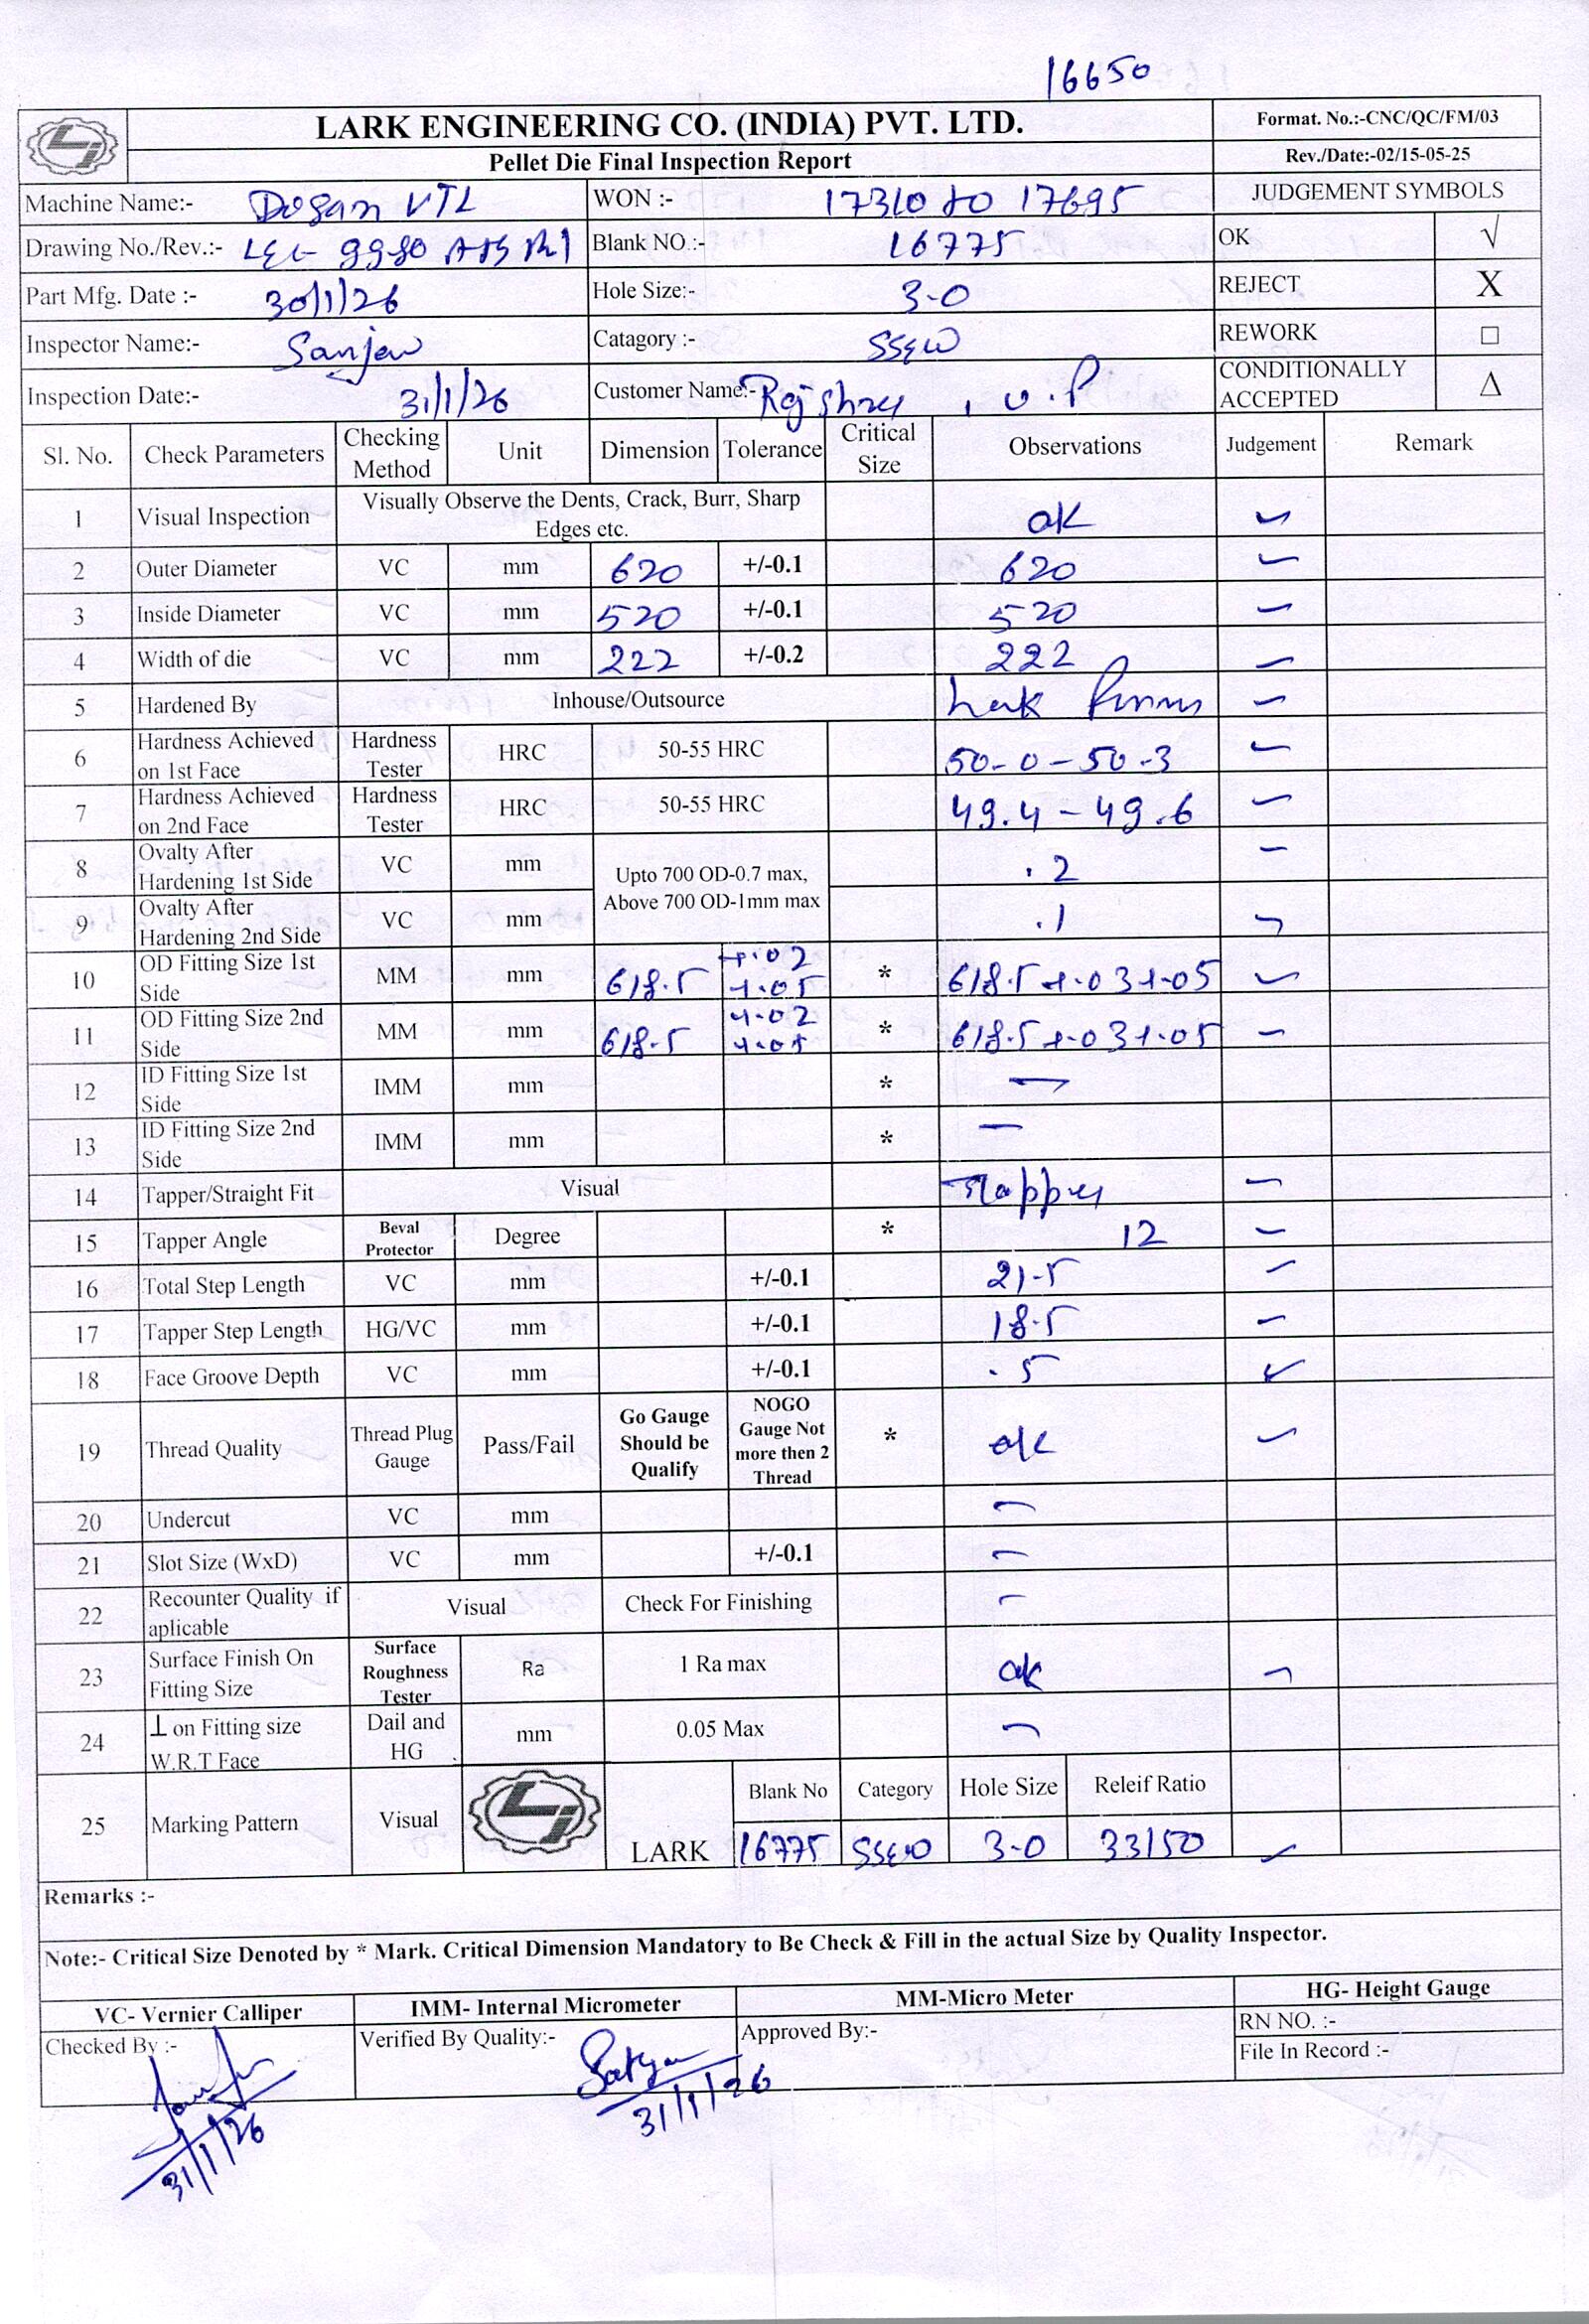 16650
LARK ENGINEERING CO. (INDIA) PVT. LTD.
Format. No.:-CNC/QC/FM/03
Pellet Die Final Inspection Report
Rev./Date:-02/15-05-25
Machine Name:- Dosan VTL WON :- 17310 to 17695 JUDGEMENT SYMBOLS
Drawing No./Rev.:- Blank NO.:- 16775 OK √
Part Mfg. Date :- 30/1/26 Hole Size:- 3-0 REJECT X
Inspector Name:- Sanjev Catagory :- SSEW REWORK □
Inspection Date:- 31/1/26 Customer Name:- Rajshree , U.P CONDITIONALLY ACCEPTED Δ
Sl. No. Check Parameters Checking Method Unit Dimension Tolerance Critical Size Observations Judgement Remark
1 Visual Inspection Visually Observe the Dents, Crack, Burr, Sharp Edges etc. ok ✓
2 Outer Diameter VC mm 620 +/-0.1 620 ✓
3 Inside Diameter VC mm 520 +/-0.1 520 ✓
4 Width of die VC mm 222 +/-0.2 222 ✓
5 Hardened By Inhouse/Outsource ✓
6 Hardness Achieved on 1st Face Hardness Tester HRC 50-55 HRC 50-0 - 50-3 ✓
7 Hardness Achieved on 2nd Face Hardness Tester HRC 50-55 HRC 49.4 - 49.6 ✓
8 Ovalty After Hardening 1st Side VC mm Upto 700 OD-0.7 max, Above 700 OD-1mm max .2 ✓
9 Ovalty After Hardening 2nd Side VC mm .1 ✓
10 OD Fitting Size 1st Side MM mm 618.5 +.02 +.05 * 618.5 +.03 +.05 ✓
11 OD Fitting Size 2nd Side MM mm 618.5 +.02 +.05 * 618.5 +.03 +.05 ✓
12 ID Fitting Size 1st Side IMM mm * —
13 ID Fitting Size 2nd Side IMM mm * —
14 Tapper/Straight Fit Visual Tapper ✓
15 Tapper Angle Beval Protector Degree * 12 ✓
16 Total Step Length VC mm +/-0.1 21.5 ✓
17 Tapper Step Length HG/VC mm +/-0.1 18.5 ✓
18 Face Groove Depth VC mm +/-0.1 .5 ✓
19 Thread Quality Thread Plug Gauge Pass/Fail Go Gauge Should be Qualify NOGO Gauge Not more then 2 Thread * ok ✓
20 Undercut VC mm —
21 Slot Size (WxD) VC mm +/-0.1 —
22 Recounter Quality if aplicable Visual Check For Finishing —
23 Surface Finish On Fitting Size Surface Roughness Tester Ra 1 Ra max ok ✓
24 ⊥ on Fitting size W.R.T Face Dail and HG mm 0.05 Max —
25 Marking Pattern Visual LARK Blank No Category Hole Size Releif Ratio
16775 SSEW 3-0 33/50 ✓
Remarks :-
Note:- Critical Size Denoted by * Mark. Critical Dimension Mandatory to Be Check & Fill in the actual Size by Quality Inspector.
VC- Vernier Calliper IMM- Internal Micrometer MM-Micro Meter HG- Height Gauge
Checked By :- Verified By Quality:- Satya Approved By:- RN NO. :-
File In Record :-
31/1/26
31/1/26